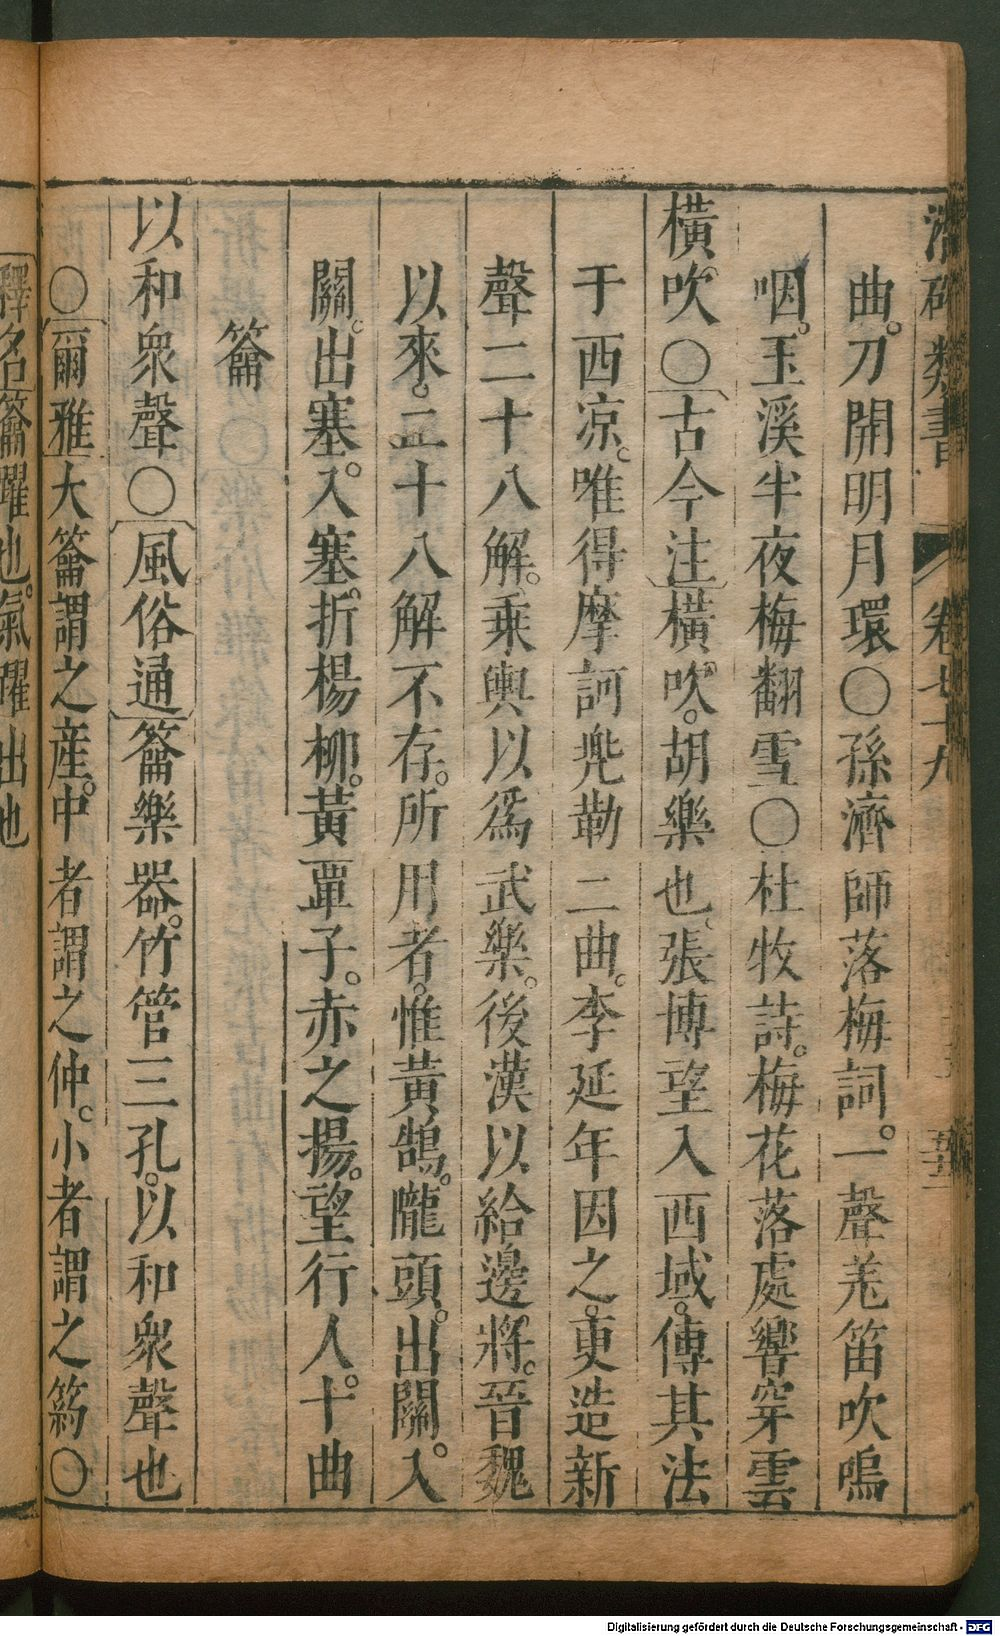 潛確類書 卷七十九
曲。刀開明月環〇孫濟師落梅詞。一聲羗笛吹嗚
咽。玉溪半夜梅翻雪〇杜牧詩。梅花落處響穿雲
橫吹〇古今注橫吹。胡樂也、張博望入西域。傳其法
于西凉。唯得摩訶兠勒二曲。李延年因之。更造新
聲二十八解。乗輿以爲武樂。後漢以給邊將。晉魏
以來。二十八解不存。所用者。惟黃鵠。隴頭。出關。入
關。出塞。入塞。折楊柳。黃覃子。赤之揚。望行人。十曲
籥
以和衆聲〇風俗通籥樂器。竹管三孔。以和衆聲也
〇爾雅大籥謂之產。中者謂之仲。小者謂之箹〇
釋名籥躍也。氣躍出也
Digitalisierung gefördert durch die Deutsche Forschungsgemeinschaft - DFG